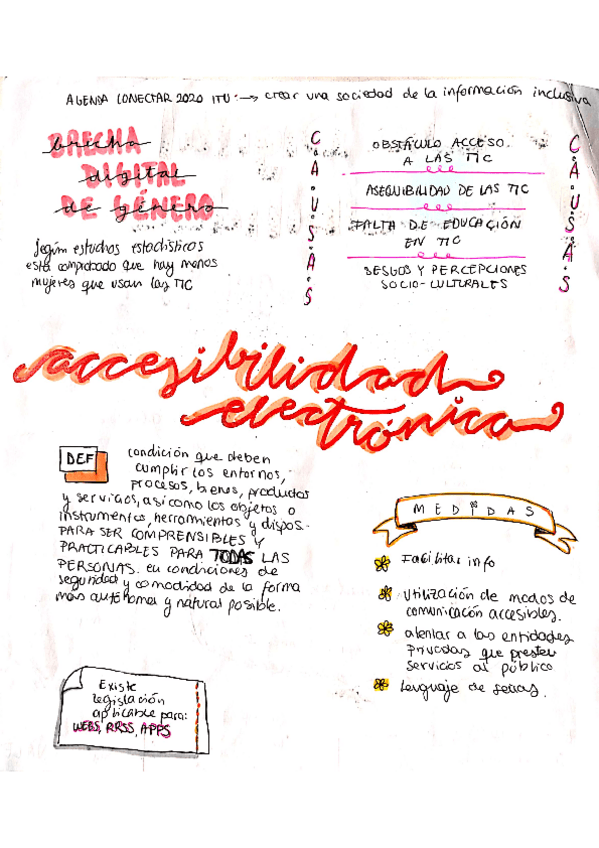 AGENDA CONECTAR 2020 ITU: → crear una sociedad de la información inclusiva
BRECHA
brecha
DIGITAL
digital
DE GÉNERO
de género
Según estudios estadísticos
está comprobado que hay menos
mujeres que usan las TIC
C.A.U.S.A.S
OBSTÁCULO ACCESO
A LAS TIC
ASEQUIBILIDAD DE LAS TIC
FALTA DE EDUCACIÓN
EN TIC
SESGOS Y PERCEPCIONES
SOCIO-CULTURALES
C.A.U.S.A.S
accesibilidad
electrónica
DEF
condición que deben
cumplir los entornos,
procesos, bienes, productos
y servicios, así como los objetos o
instrumentos, herramientas y dispos.
PARA SER COMPRENSIBLES Y
PRACTICABLES PARA TODAS LAS
PERSONAS. en condiciones de
seguridad y comodidad de la forma
más autónoma y natural posible.
MEDIDAS
Facilitar info
utilización de medios de
comunicación accesibles.
alentar a las entidades
privadas que presten
servicios al público
lenguaje de señas.
Existe
legislación
aplicable para:
WEBS, RRSS, APPS